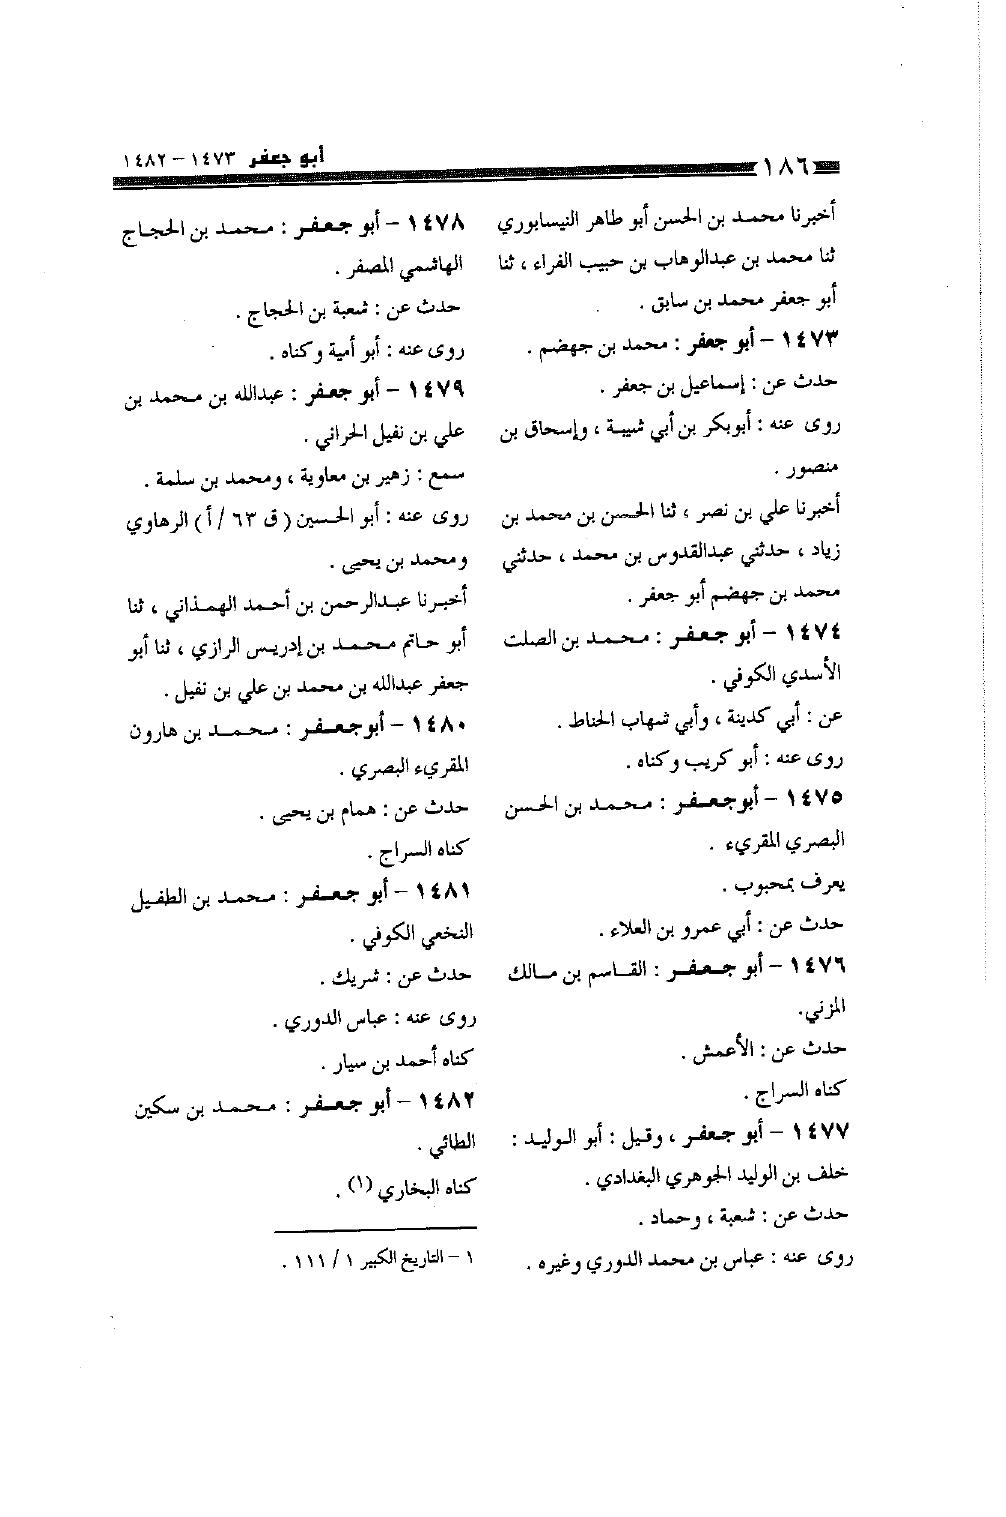 ١٨٦
أبو جعفر ١٤٧٣ - ١٤٨٢
أخبرنا محمد بن الحسن أبو طاهر النيسابوري
ثنا محمد بن عبدالوهاب بن حبيب الفراء ، ثنا
أبو جعفر محمد بن سابق .
١٤٧٣ - أبو جعفر : محمد بن جهضم .
حدث عن : إسماعيل بن جعفر .
روى عنه : أبوبكر بن أبي شيبة ، وإسحاق بن
منصور .
أخبرنا علي بن نصر ، ثنا الحسن بن محمد بن
زياد ، حدثني عبدالقدوس بن محمد ، حدثني
محمد بن جهضم أبو جعفر .
١٤٧٤ - أبو جعفر : محمد بن الصلت
الأسدي الكوفي .
عن : أبي كدينة ، وأبي شهاب الحناط .
روى عنه : أبو كريب وكناه .
١٤٧٥ - أبوجعفر : محمد بن الحسن
البصري المقريء .
يعرف بمحبوب .
حدث عن : أبي عمرو بن العلاء .
١٤٧٦ - أبو جعفر : القاسم بن مالك
المزني.
حدث عن : الأعمش .
كناه السراج .
١٤٧٧ - أبو جعفر ، وقيل : أبو الوليد :
خلف بن الوليد الجوهري البغدادي .
حدث عن : شعبة ، وحماد .
روى عنه : عباس بن محمد الدوري وغيره .
١٤٧٨ - أبو جعفر : محمد بن الحجاج
الهاشمي المصفر .
حدث عن : شعبة بن الحجاج .
روى عنه : أبو أمية وكناه .
١٤٧٩ - أبو جعفر : عبدالله بن محمد بن
علي بن نفيل الحراني .
سمع : زهير بن معاوية ، ومحمد بن سلمة .
روى عنه : أبو الحسين ( ق ٦٣ / أ ) الرهاوي
ومحمد بن يحيى .
أخبرنا عبدالرحمن بن أحمد الهمذاني ، ثنا
أبو حاتم محمد بن إدريس الرازي ، ثنا أبو
جعفر عبدالله بن محمد بن علي بن نفيل .
١٤٨٠ - أبوجعفر : محمد بن هارون
المقريء البصري .
حدث عن : همام بن يحيى .
كناه السراج .
١٤٨١ - أبو جعفر : محمد بن الطفيل
النخعي الكوفي .
حدث عن : شريك .
روى عنه : عباس الدوري .
كناه أحمد بن سيار .
١٤٨٢ - أبو جعفر : محمد بن سكين
الطائي .
كناه البخاري (١) .
١ - التاريخ الكبير ١ / ١١١ .